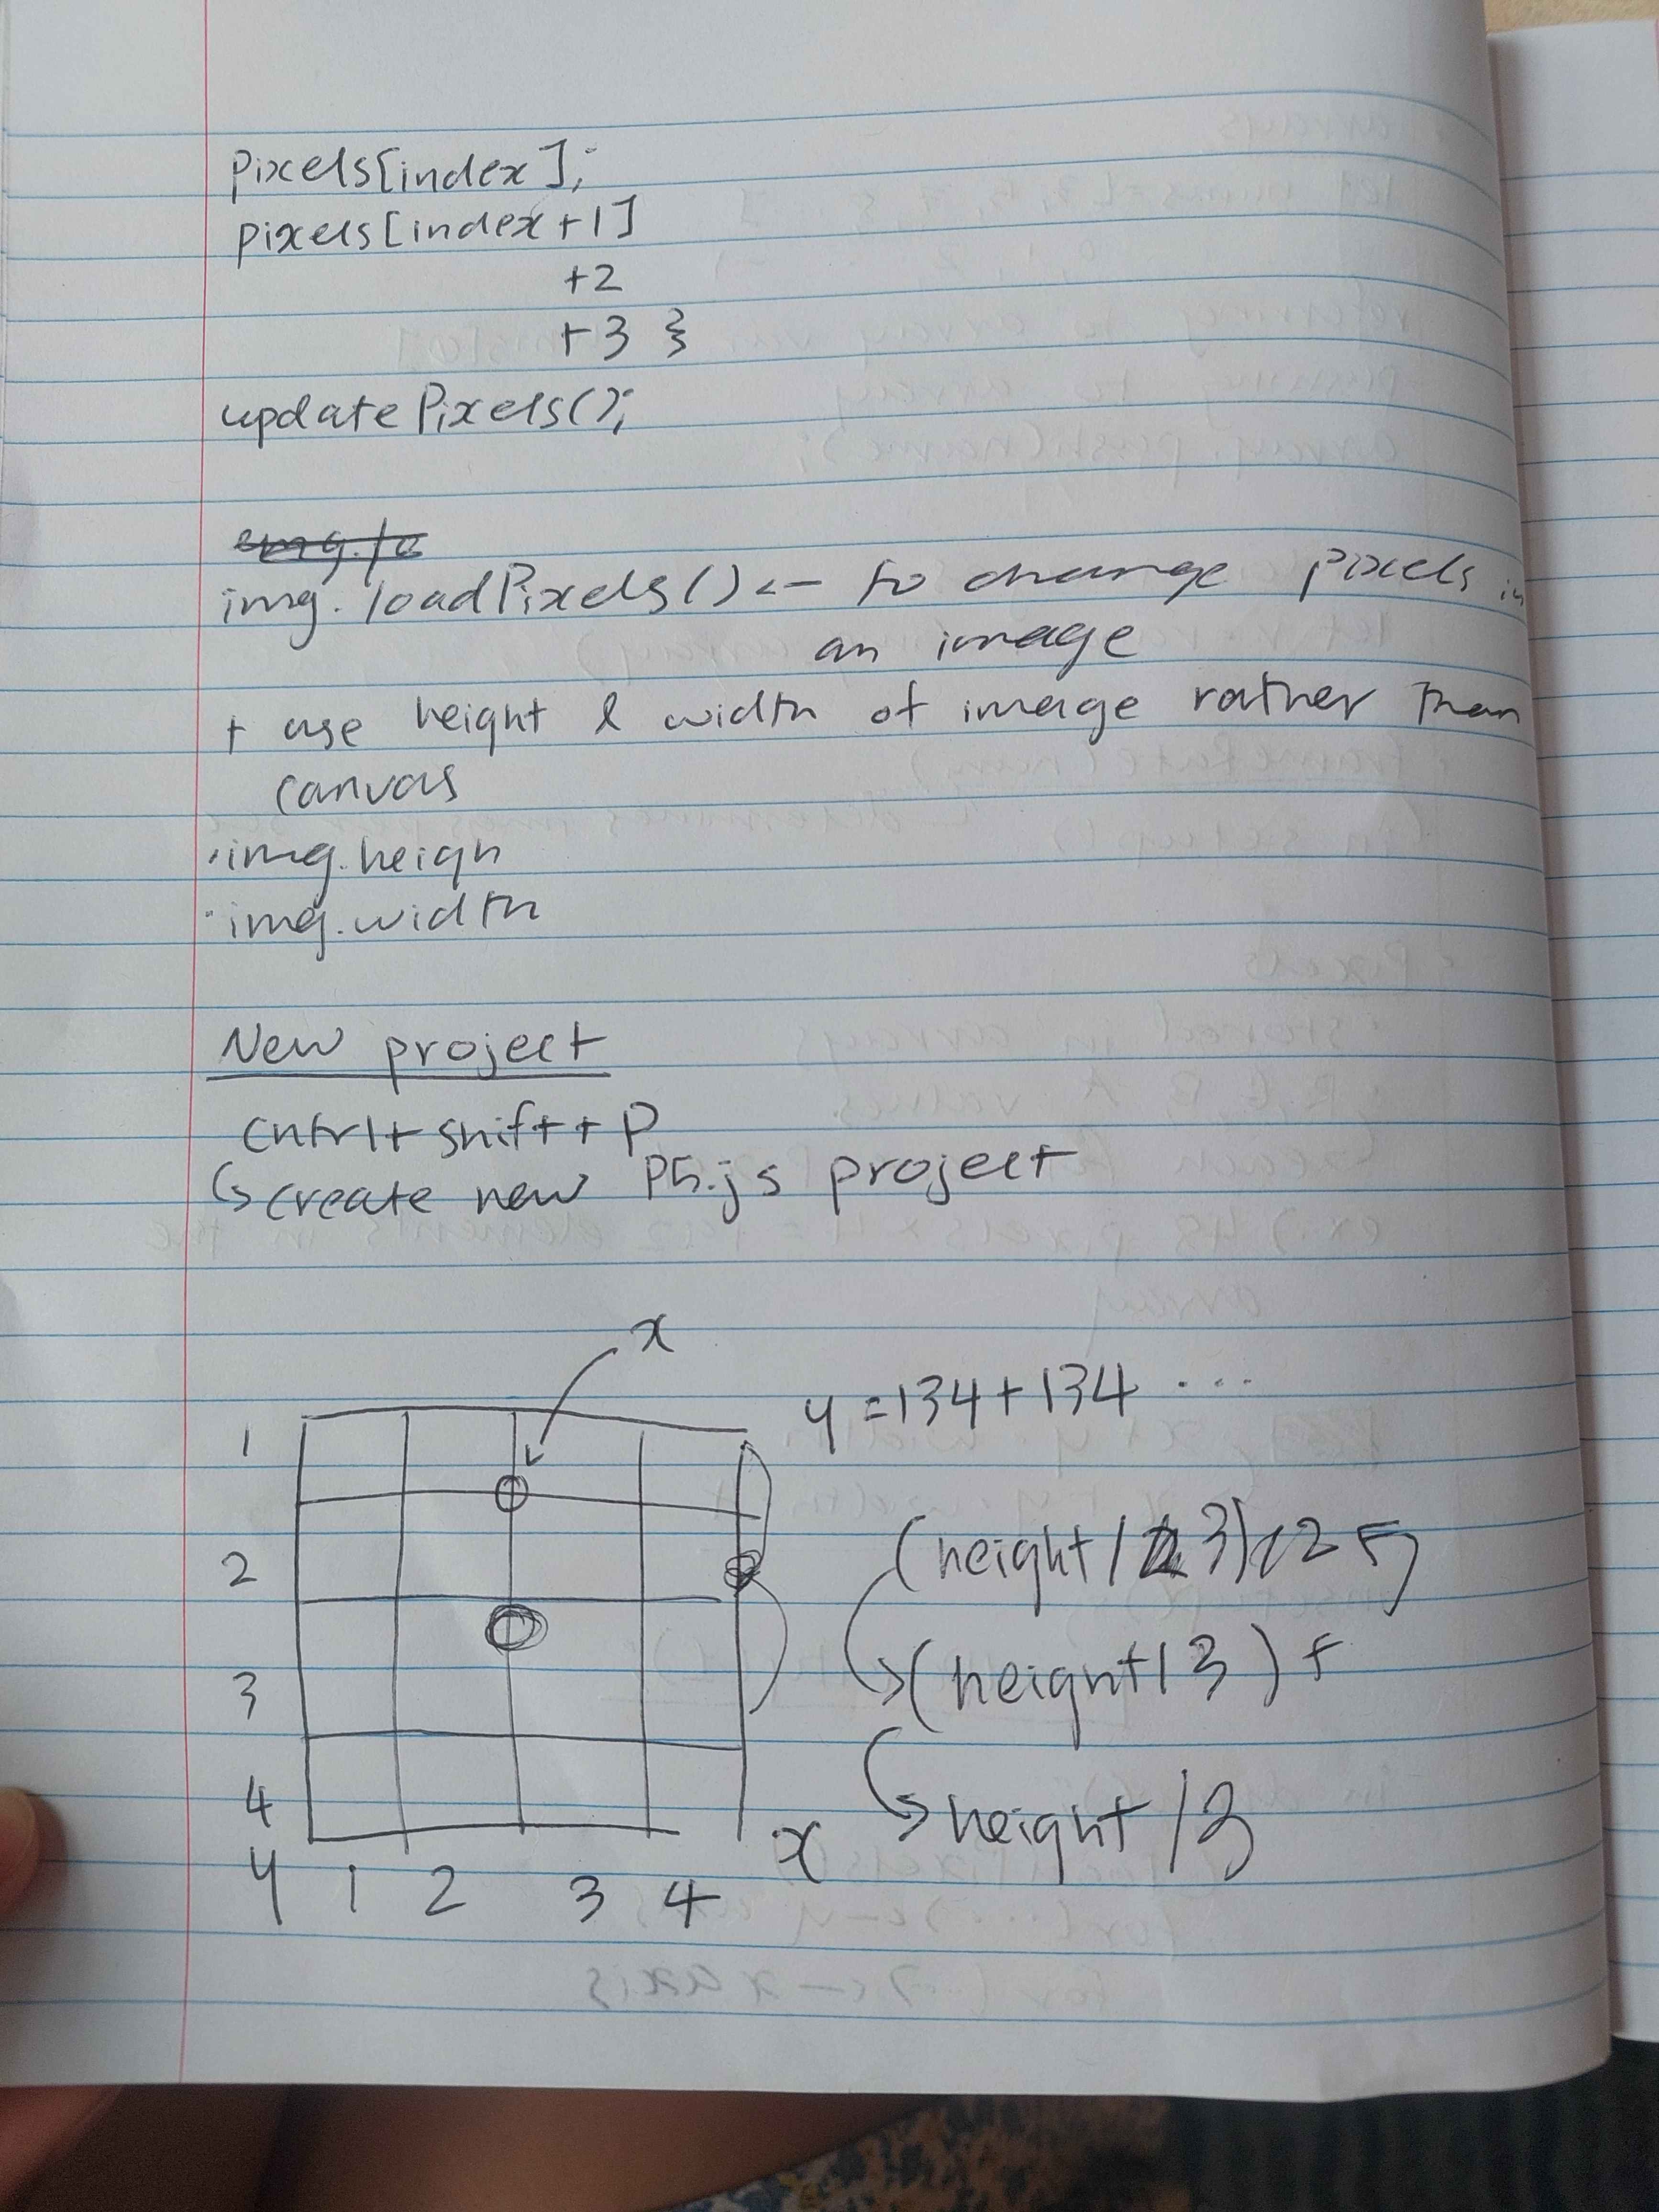 pixels[index];
pixels[index+1]
+2
+3 }
updatePixels();
img.loadPixels() <- to change pixels in
an image
+ use height & width of image rather than
canvas
·img.heigh
·img.width
New project
Cntrl+shift++P
↳ create new P5.js project
x
y=134+134 ...
1
(height/3)
2
(height/3)+
3
height/3
4
x
y 1 2 3 4